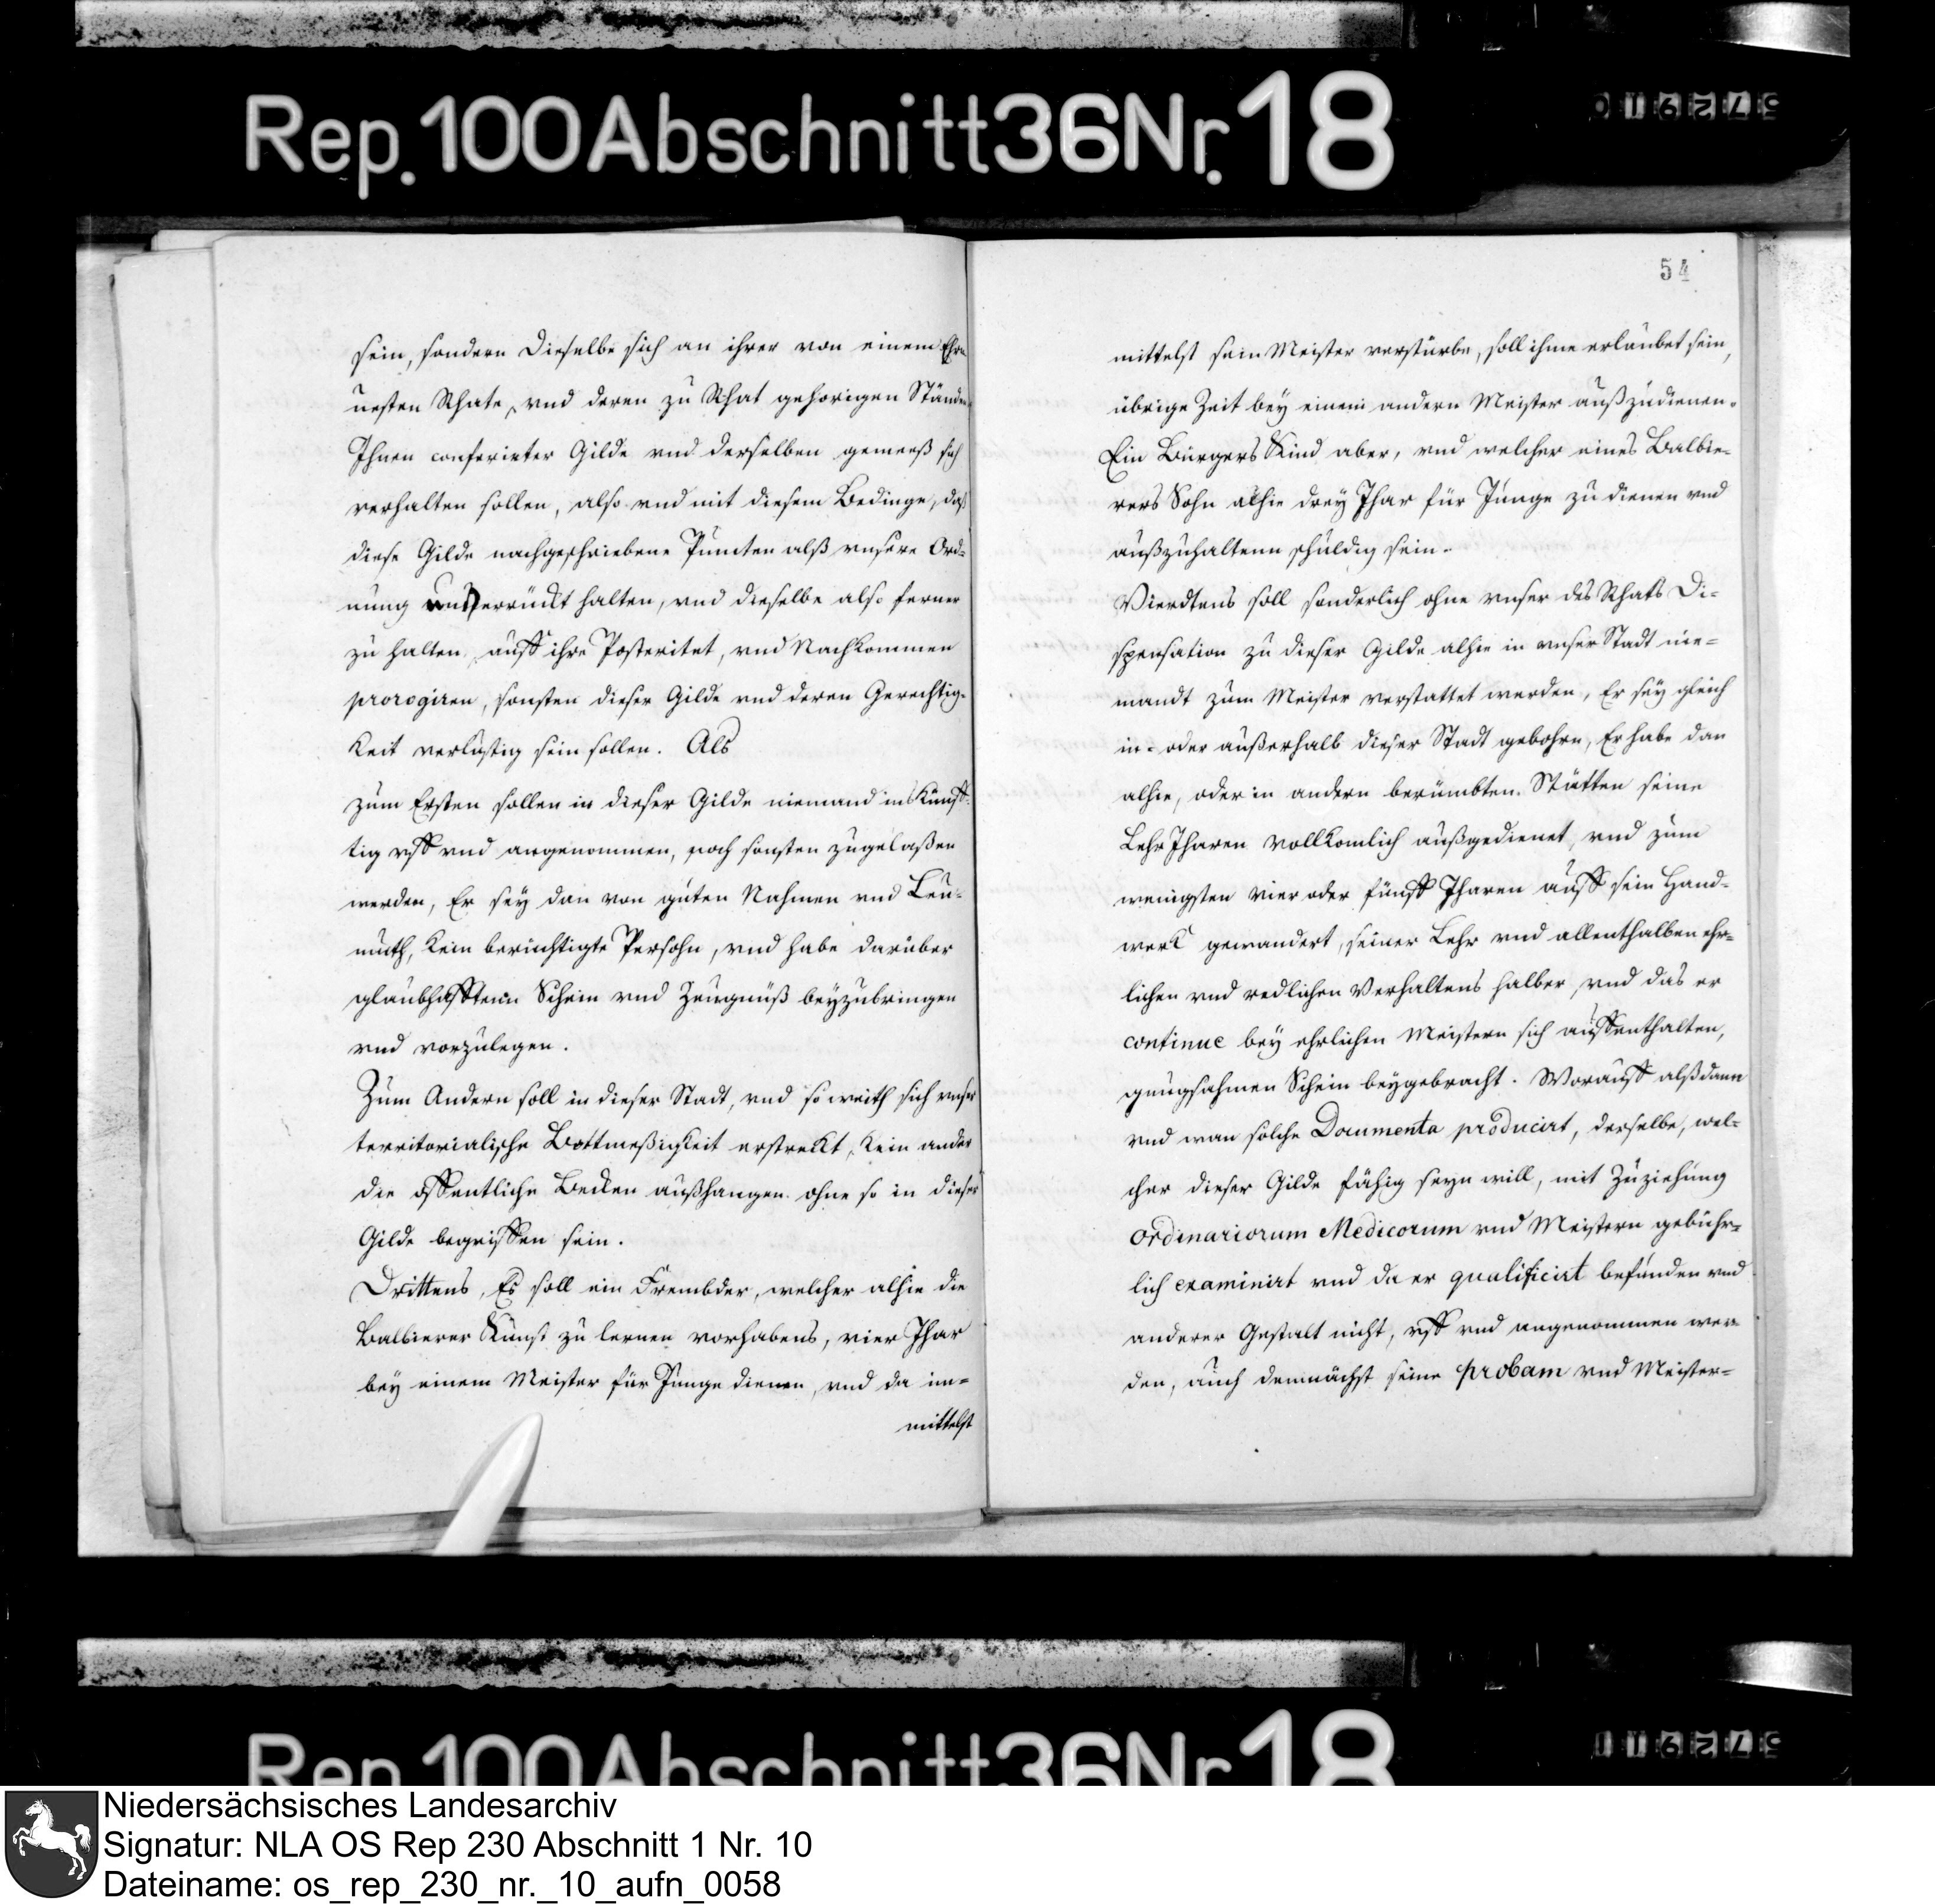 Rep. 100 Abschnitt 36 Nr. 18
sein, sondern dieselbe sich an ihrer von einem Ehrn
uesten Rhate, vnd deren zu Rhat gehorigen Stände
Ihnen conferirter Gilde vnd derselben gemeeß sich
verhalten sollen, also vnd mit diesem Bedinge, daß
diese Gilde nachgeschriebene Puncten alß vnsere Ord-
nung unverrückt halten, vnd dieselbe also ferner
zu halten, auff ihre Posteritet, vnd Nachkommen
prorogiren, sonsten dieser Gilde vnd deren Gerechtig-
keit verlustig sein sollen. Als
zum Ersten sollen in dieser Gilde niemand ins Künff-
tig vff vnd angenommen, noch sonsten zugelaßen
werden, Er sey dan von guten Nahmen vnd Leu-
muth, kein berüchtigte Persohn, vnd habe darüber
glaubhafftenn Schein vnd Zeugnüß beyzubringen
vnd vorzulegen.
Zum Andern soll in dieser Stadt, vnd so weith sich vnser
territorialische Bottmeßigkeit erstreckt, kein ander
die öffentliche Becken außhangen ohne so in dieser
Gilde begriffen sein.
Drittens, Es soll ein Frembder, welcher alhie die
Balbierer Kunst zu lernen vorhabens, vier Jhar
bey einem Meister für Junge dienen, vnd da im-
mittelst
54
mittelst sein Meister verstürbe, soll ihme erlaubet sein,
übrige Zeit bey einem andern Meister außzudienen.
Ein Bürgers Kind aber, vnd welcher eines Balbie-
rers Sohn alhie drey Jhar für Junge zu dienen vnd
außzuhaltenn schuldig sein.
Vierdtens soll sonderlich ohne vnser des Rhats Di-
spensation zu dieser Gilde alhie in vnser Stadt nie-
mandt zum Meister verstattet werden, Er sey gleich
in- oder außerhalb dieser Stadt gebohrn, Er habe dan
alhie, oder in andern berümbten Stätten seine
Lehr Jharen vollkomlich außgedienet, vnd zum
wenigsten vier oder fünff Jharen auff sein Hand-
werk gewandert, seiner Lehr vnd allenthalben ehr-
lichen vnd redlichen Verhaltens halber, vnd das er
continue bey ehrlichen Meistern sich auffenthalten,
gnugsahmen Schein beygebracht. Worauff alßdann
vnd wan solche Documenta producirt, derselbe, wel-
cher dieser Gilde fähig seyn will, mit Zuziehung
ordinariorum Medicorum vnd Meistern gebühr-
lich examinirt vnd da er qualificirt befunden vnd
anderer Gestalt nicht, vff vnd angenommen wer-
den, auch demnächst seine probam vnd Meister-
Rep. 100 Abschnitt 36 Nr. 18
Niedersächsisches Landesarchiv
Signatur: NLA OS Rep 230 Abschnitt 1 Nr. 10
Dateiname: os_rep_230_nr._10_aufn_0058